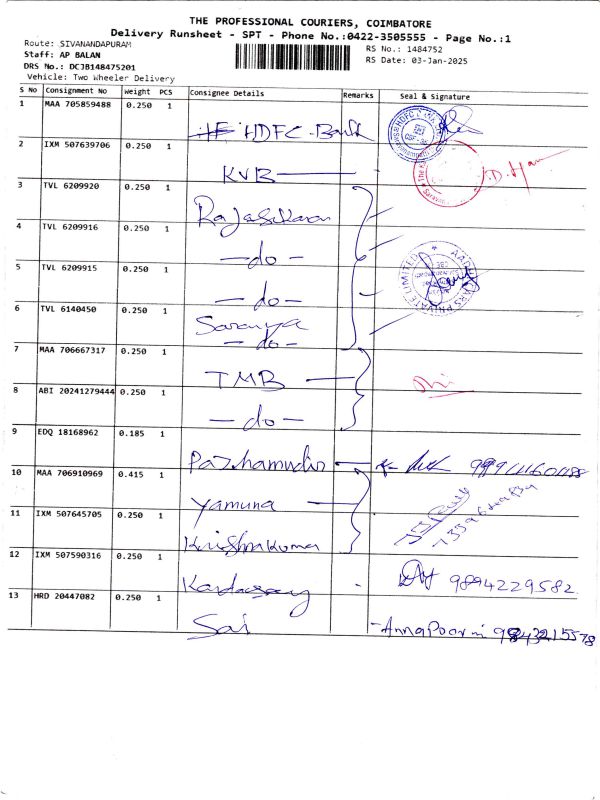 THE PROFESSIONAL COURIERS, COIMBATORE
Delivery Runsheet - SPT - Phone No.:0422-3505555 - Page No.:1
Route: SIVANANDAPURAM
RS No.: 1484752
Staff: AP BALAN
RS Date: 03-Jan-2025
DRS No.: DCJB148475201
Vehicle: Two Wheeler Delivery
S No Consignment No Weight PCS Consignee Details Remarks Seal & Signature
1 MAA 705859488 0.250 1
HDFC Bank
2 IXM 507639706 0.250 1
KVB
3 TVL 6209920 0.250 1
Rajasekaran
4 TVL 6209916 0.250 1
- do -
5 TVL 6209915 0.250 1
- do -
6 TVL 6140450 0.250 1
Saranya
- do -
7 MAA 706667317 0.250 1
TMB
8 ABI 20241279444 0.250 1
- do -
9 EDQ 18168962 0.185 1
10 MAA 706910969 0.415 1
Yamuna
11 IXM 507645705 0.250 1
Krishnakumar
12 IXM 507590316 0.250 1
9894229582
13 HRD 20447082 0.250 1
Sai
PRIVATE LIMITED